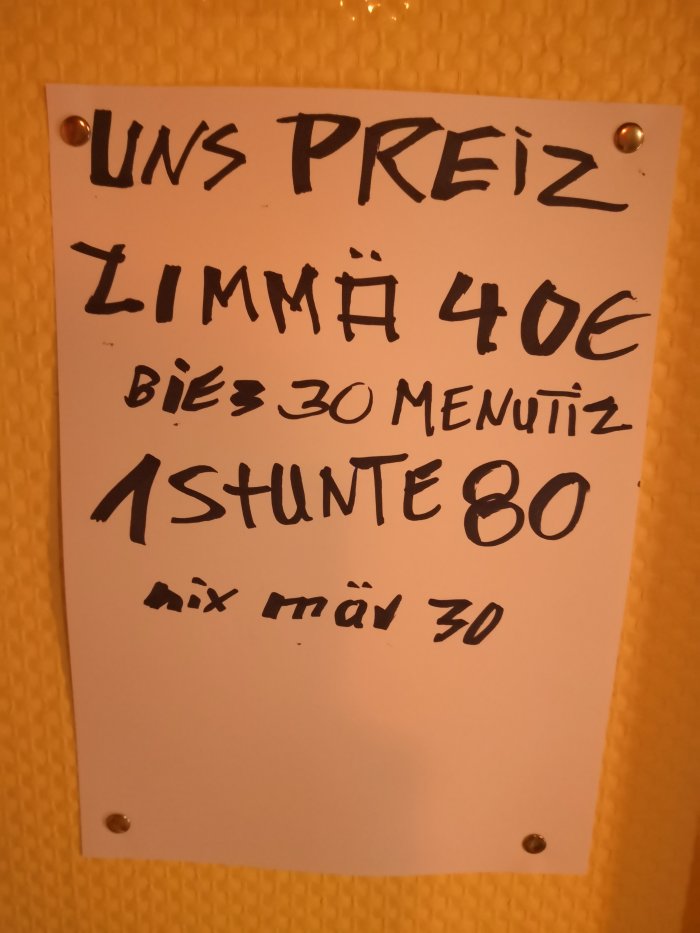 UNS PREiZ
ZIMMÄ 40€
BiEZ 30 MENUTiZ
1 STUNTE 80
nix mär 30